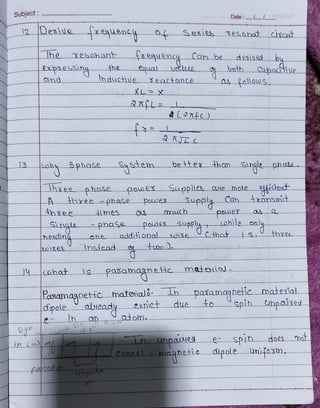 Subject :
Date : / /
12 Derive frequency of series resonat circuit
The resonant frequency can be derived by
expressing the equal value of both capacitive
and inductive reactance as follows,
XL = X
2πfL = 1
2(2πfC)
fr = 1
2π√LC
13 why 3phase System better than single phase.
Three phase power supplies are more efficient
A three-phase power supply can transmit
three times as much power as a
single-phase power supply, while only
needing one additional wire (that is, three
wires instead of two).
14 what is paramagnetic material.
Paramagnetic materials:- In paramagnetic material
dipole already exict due to spin unpaired
e- in an atom.
paired e-
unpair
e-
In unpaired e- spin does not
cancel - magnetic dipole uniform.